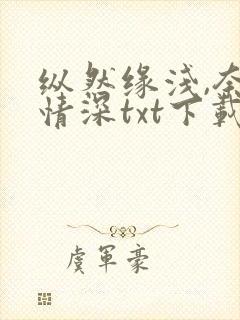 纵然缘浅,奈
情深txt下载
虞军豪